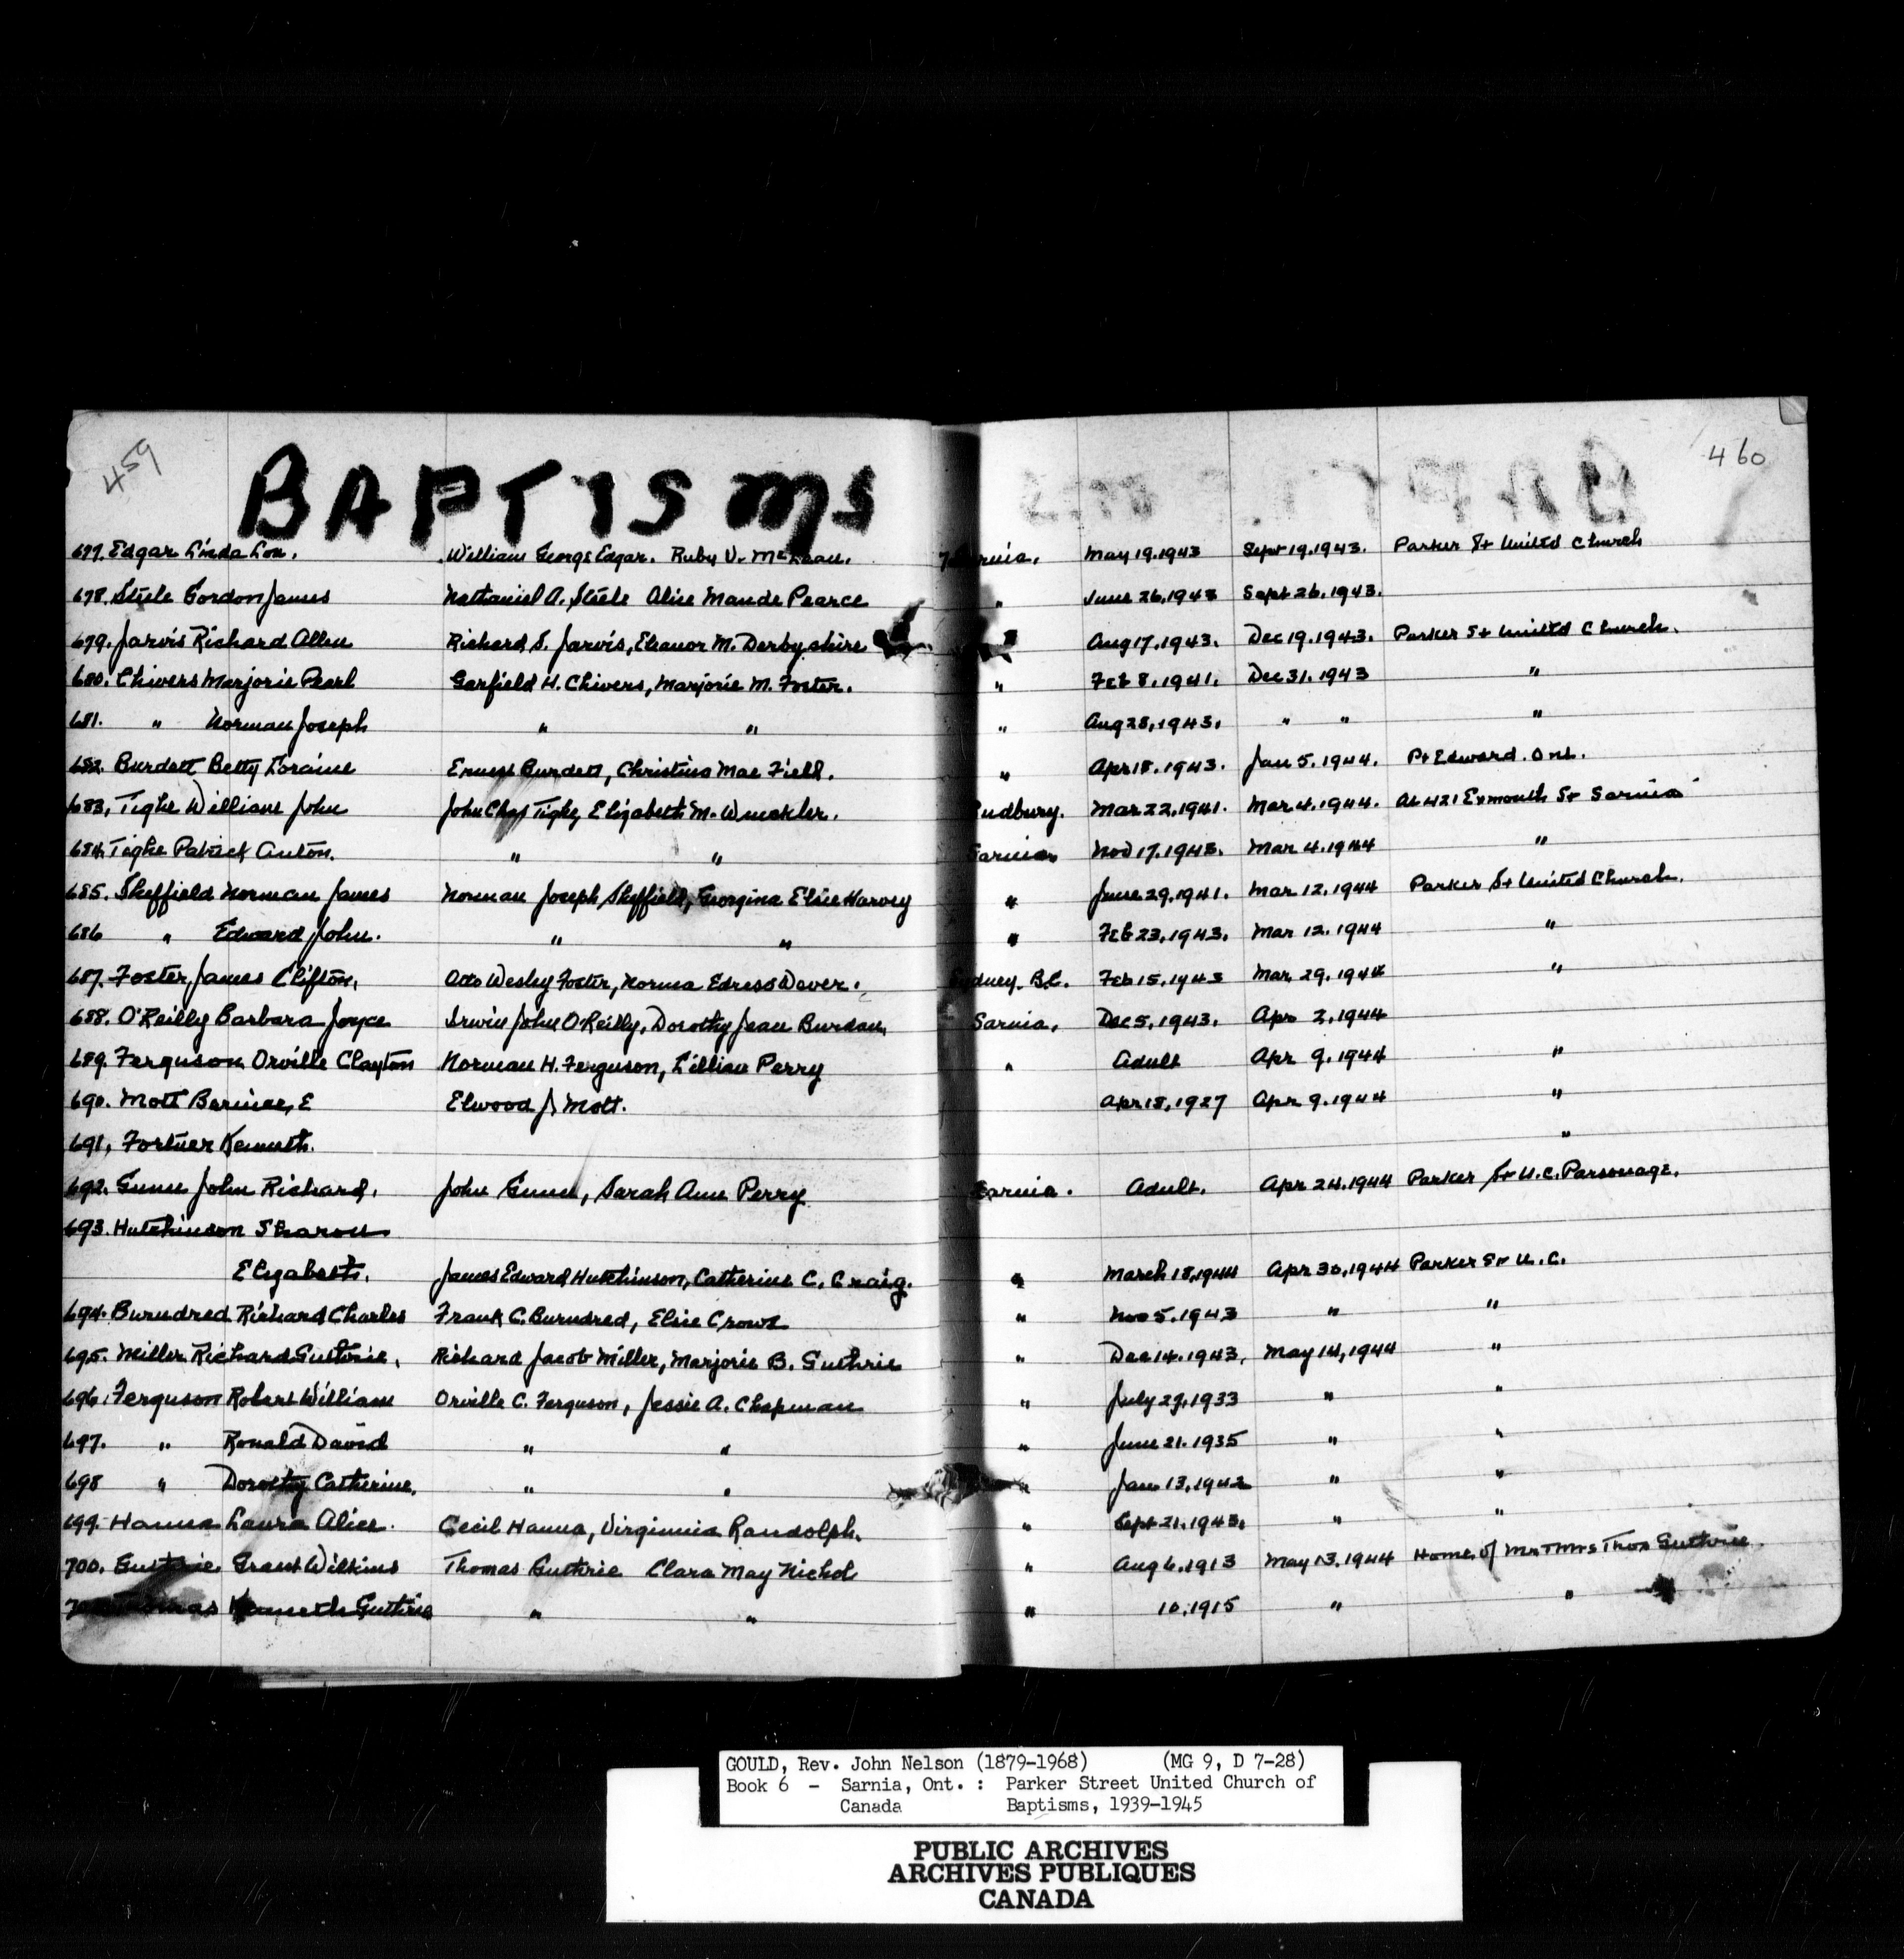 459
460
BAPTISMS
677. Edgar Linda Lou. William George Edgar. Ruby V. McLean. May 19.1943 Sept 19.1943. Parker St United Church
678. Steele Gordon James Nathaniel A. Steele Alice Maude Pearce " June 26.1943 Sept 26.1943.
679. Jarvis Richard Allen Richard S. Jarvis, Eleanor M. Derbyshire Aug 17.1943. Dec 19.1943. Parker St United Church.
680. Chivers Marjorie Pearl Garfield H. Chivers, Marjorie M. Foster. " Feb 8.1941. Dec 31.1943 "
681. " Norman Joseph " " " Aug 28.1943. " " "
682. Burdett Betty Loraine Ernest Burdett, Christina Mae Field. " Apr 18.1943. Jan 5.1944. Pt Edward. Ont.
683, Tighe William John John Chas Tighe, Elizabeth M. Sudbury. Mar 22.1941. Mar 4.1944. At 421 Exmouth St Sarnia
684. Tighe Patrick Anton. " " Sarnia Nov 17.1943. Mar 4.1944 "
685. Sheffield Norman James Norman Joseph Sheffield, Georgina Elsie Harvey " June 29.1941. Mar 12.1944 Parker St United Church.
686 " Edward John. " " " Feb 23.1943. Mar 12.1944 "
687. Foster, James Clifton. Otto Wesley Foster, Norma Edress Dever. Sydney. B.C. Feb 15.1943 Mar 29.1944 "
688. O'Reilly Barbara Joyce Irwin John O'Reilly, Dorothy Jean Sarnia, Dec 5.1943. Apr 2.1944
689. Ferguson Orville Clayton Norman H. Ferguson, Lillian Perry " Adult Apr 9.1944 "
690. Mott E Elwood J Mott. Apr 18,1927 Apr 9.1944 "
691, Kenneth. "
692. Gunn John Richard. John Gunn, Sarah Ann Perry Sarnia. Adult. Apr 24.1944 Parker St U.C. Parsonage.
693. Hutchinson Sharon
Elizabeth. James Edward Hutchinson, Catherine C. Craig. " March 18,1944 Apr 30,1944 Parker St U.C.
694. Burndred Richard Charles Frank C. Burndred, Elsie Crowe " Nov 5.1943 " "
695. Miller Richard Guthrie. Richard Jacob Miller, Marjorie B. Guthrie " Dec 14.1943, May 14,1944 "
696. Ferguson Robert William Orville C. Ferguson, Jessie A. Chapman " July 29.1933 " "
697. " Ronald David " " " June 21.1935 " "
698 " Dorothy Catherine. " " " Jan 13,1942 " "
699. Hanna Laura Alice. Cecil Hanna, Virginnia Randolph. " Sept 21.1943. " "
700. Guthrie Grant Wilkins Thomas Guthrie Clara May Nichol " Aug 6.1913 May 13.1944 Home of Mr & Mrs Thos Guthrie.
Kenneth Guthrie " " " 10.1915 " "
GOULD, Rev. John Nelson (1879-1968) (MG 9, D 7-28)
Book 6 - Sarnia, Ont. : Parker Street United Church of
Canada Baptisms, 1939-1945
PUBLIC ARCHIVES
ARCHIVES PUBLIQUES
CANADA